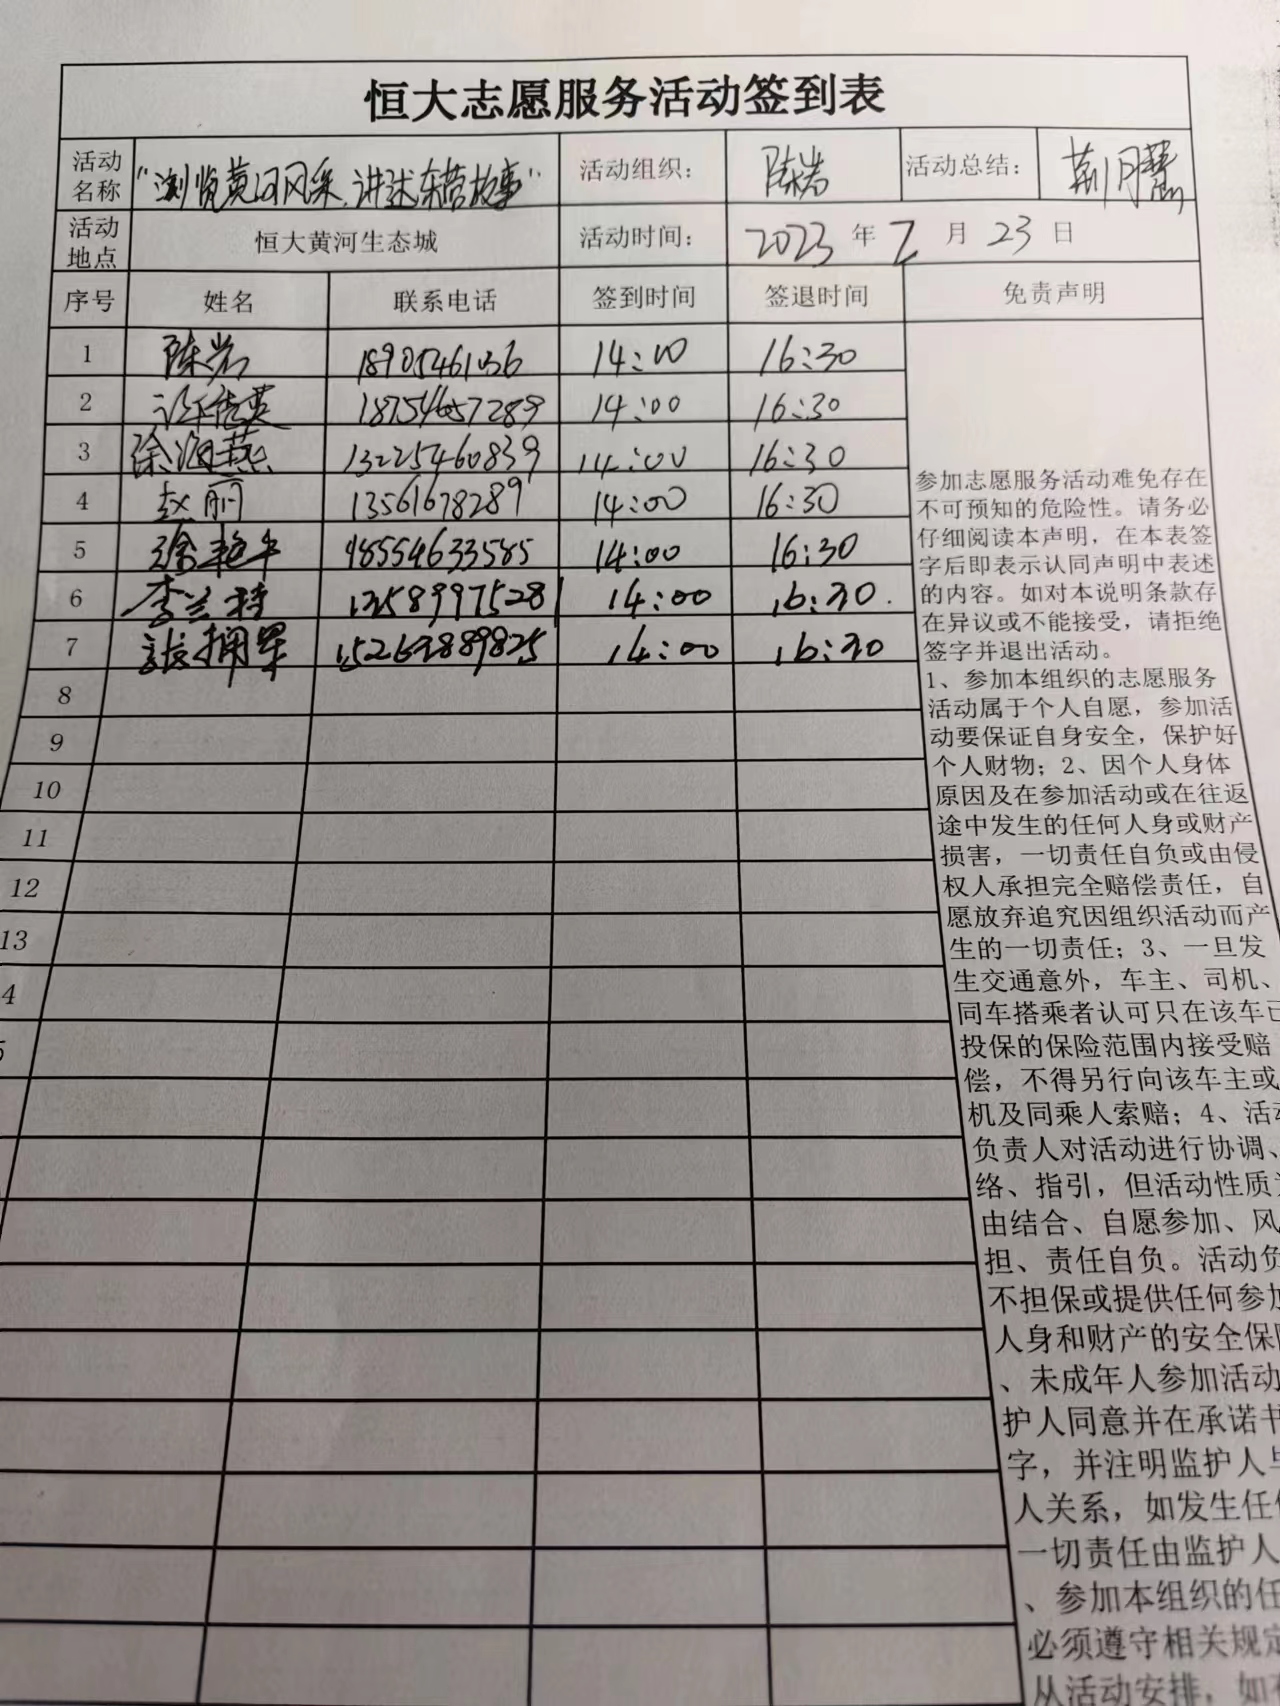 恒大志愿服务活动签到表
活动名称 "浏览黄河风采,讲述东营故事" 活动组织: 陈岩 活动总结: 荆月慧
活动地点 恒大黄河生态城 活动时间: 2023 年 2 月 23 日
序号 姓名 联系电话 签到时间 签退时间 免责声明
1 陈岩 14:00 16:30
2 18754657289 14:00 16:30
3 徐海燕 13225460839 14:00 16:30
4 赵丽 13561678289 14:00 16:30
5 徐艳华 18554633585 14:00 16:30
6 李兰 14:00 16:30
7 14:00 16:30
8
9
10
11
12
13
4
5
参加志愿服务活动难免存在
不可预知的危险性。请务必
仔细阅读本声明,在本表签
字后即表示认同声明中表述
的内容。如对本说明条款存
在异议或不能接受,请拒绝
签字并退出活动。
1、参加本组织的志愿服务
活动属于个人自愿,参加活
动要保证自身安全,保护好
个人财物;2、因个人身体
原因及在参加活动或在往返
途中发生的任何人身或财产
损害,一切责任自负或由侵
权人承担完全赔偿责任,自
愿放弃追究因组织活动而产
生的一切责任;3、一旦发
生交通意外,车主、司机、
同车搭乘者认可只在该车已
投保的保险范围内接受赔
偿,不得另行向该车主或
机及同乘人索赔;4、活动
负责人对活动进行协调、
络、指引,但活动性质
由结合、自愿参加、风
担、责任自负。活动负
不担保或提供任何参加
人身和财产的安全保
、未成年人参加活动
护人同意并在承诺书
字,并注明监护人与
人关系,如发生任何
一切责任由监护人
、参加本组织的任
必须遵守相关规定
从活动安排,如